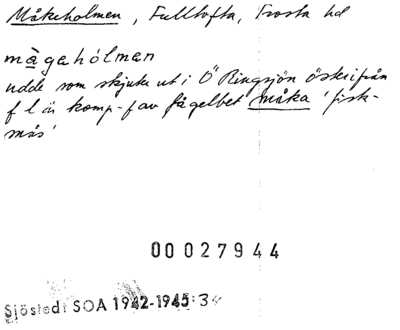 Måkeholmen, Fulltofta, Frosta hd
mågahólmen
udde som skjuter ut i Ö Ringsjön österifrån
f l är komp-f av fågelbet måka 'fisk-
mås'
00027944
Sjöstedt SOA 1942-1945:34